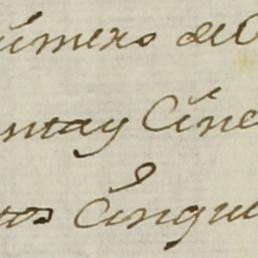 úmero de C
entay Cinc
tos Cinque